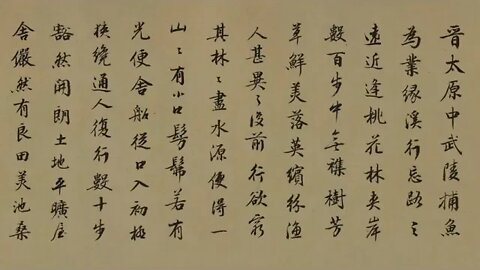 晉太原中武陵捕魚
為業緣溪行忘路之
遠近逢桃花林夾岸
數百步中無雜樹芳
草鮮美落英繽紛漁
人甚異之復前行欲窮
其林〻盡水源便得一
山〻有小口髣髴若有
光便舍船從口入初極
狹纔通人復行數十步
豁然開朗土地平曠屋
舍儼然有良田美池桑